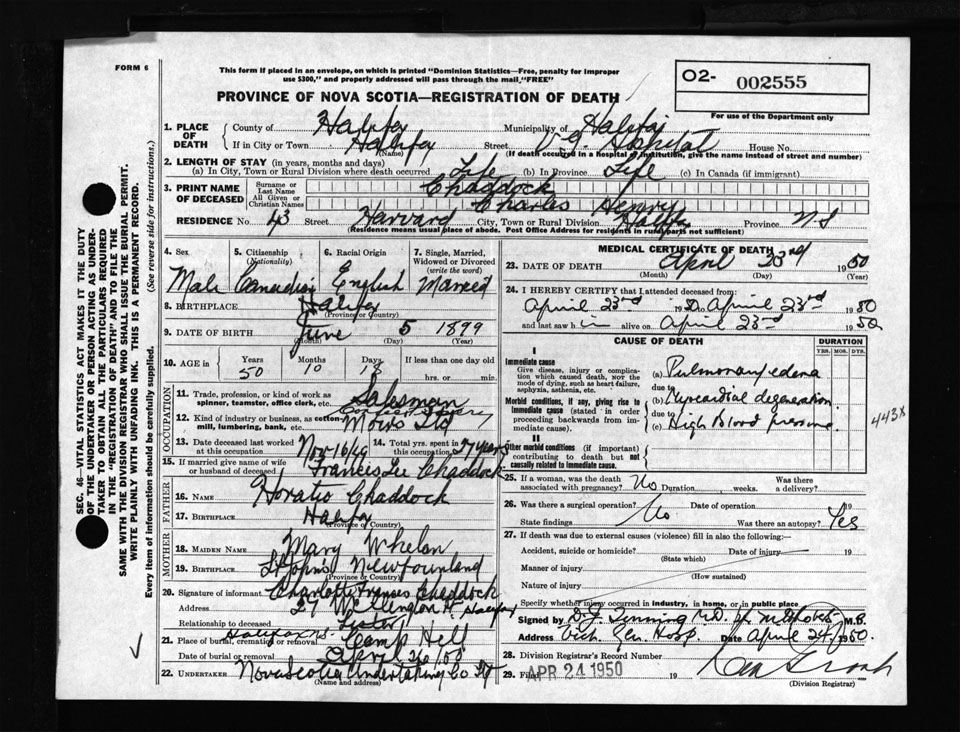 FORM 6
This form if placed in an envelope, on which is printed "Dominion Statistics—Free, penalty for improper
use $300," and properly addressed will pass through the mail, "FREE"
O2- 002555
For use of the Department only
PROVINCE OF NOVA SCOTIA—REGISTRATION OF DEATH
SEC. 46—VITAL STATISTICS ACT MAKES IT THE DUTY
OF THE UNDERTAKER OR PERSON ACTING AS UNDER-
TAKER TO OBTAIN ALL THE PARTICULARS REQUIRED
IN THE "REGISTRATION OF DEATH" AND TO FILE THE
SAME WITH THE DIVISION REGISTRAR WHO SHALL ISSUE THE BURIAL PERMIT.
WRITE PLAINLY WITH UNFADING INK. THIS IS A PERMANENT RECORD.
Every item of information should be carefully supplied. (See reverse side for instructions.)
1. PLACE OF DEATH County of Halifax Municipality of Halifax
If in City or Town Halifax Street V.G. Hospital House No.
(Name) (If death occurred in a hospital or institution, give the name instead of street and number)
2. LENGTH OF STAY (in years, months and days)
(a) In City, Town or Rural Division where death occurred Life (b) In Province Life (c) In Canada (if immigrant)
3. PRINT NAME OF DECEASED Surname or Last Name Chaddock
All Given or Christian Names Charles Henry
RESIDENCE No. 43 Street Harvard City, Town or Rural Division Halifax Province N.S
(Residence means usual place of abode. Post Office Address for residents in rural parts not sufficient)
4. Sex 5. Citizenship (Nationality) 6. Racial Origin 7. Single, Married, Widowed or Divorced (write the word)
Male Canadian English Married
8. BIRTHPLACE Halifax
(Province or Country)
9. DATE OF BIRTH June 5 1899
(Month) (Day) (Year)
10. AGE in Years Months Days If less than one day old
50 10 18 hrs. or min.
OCCUPATION
11. Trade, profession, or kind of work as spinner, teamster, office clerk, etc. Salesman
12. Kind of industry or business, as cotton mill, lumbering, bank, etc. Moirs Ltd
13. Date deceased last worked at this occupation Nov 16/49 14. Total yrs. spent in this occupation 27 years
15. If married give name of wife or husband of deceased Frances Lee Chaddock
FATHER
16. NAME Horatio Chaddock
17. BIRTHPLACE Halifax
(Province or Country)
MOTHER
18. MAIDEN NAME Mary Whelan
19. BIRTHPLACE St Johns Newfounland
(Province or Country)
20. Signature of informant Charlotte Frances Chaddock
Address 27 Wellington St. Halifax
Relationship to deceased Sister
21. Place of burial, cremation or removal Halifax N.S. Camp Hill
Date of burial or removal April 26/50
22. UNDERTAKER Nova Scotia Undertaking Co Ltd
(Name and address)
MEDICAL CERTIFICATE OF DEATH
23. DATE OF DEATH April 23rd 1950
(Month) (Day)
24. I HEREBY CERTIFY that I attended deceased from:
April 23rd 1950 to April 23rd 1950
and last saw him alive on April 23rd 1950
CAUSE OF DEATH DURATION
YRS. MOS. DYS.
I
Immediate cause
Give disease, injury or complication which caused death, NOT the mode of dying, such as heart failure, asphyxia, asthenia, etc.
(a) Pulmonary edema
due to
Morbid conditions, if any, giving rise to immediate cause (stated in order proceeding backwards from immediate cause)
(b) Myocardial degeneration
due to
(c) High Blood pressure.
4438
II
Other morbid conditions (if important) contributing to death but not causally related to immediate cause.
25. If a woman, was the death associated with pregnancy? No Duration weeks. Was there a delivery?
26. Was there a surgical operation? No Date of operation 19
State findings Was there an autopsy? Yes
27. If death was due to external causes (violence) fill in also the following:
Accident, suicide or homicide? Date of injury 19
(State which)
Manner of injury
(How sustained)
Nature of injury
Specify whether injury occurred in industry, in home, or in public place
Signed by M.D.
Address Vict. Gen. Hosp. Date April 24/1950.
28. Division Registrar's Record Number
29. Filed APR 24 1950
(Division Registrar)